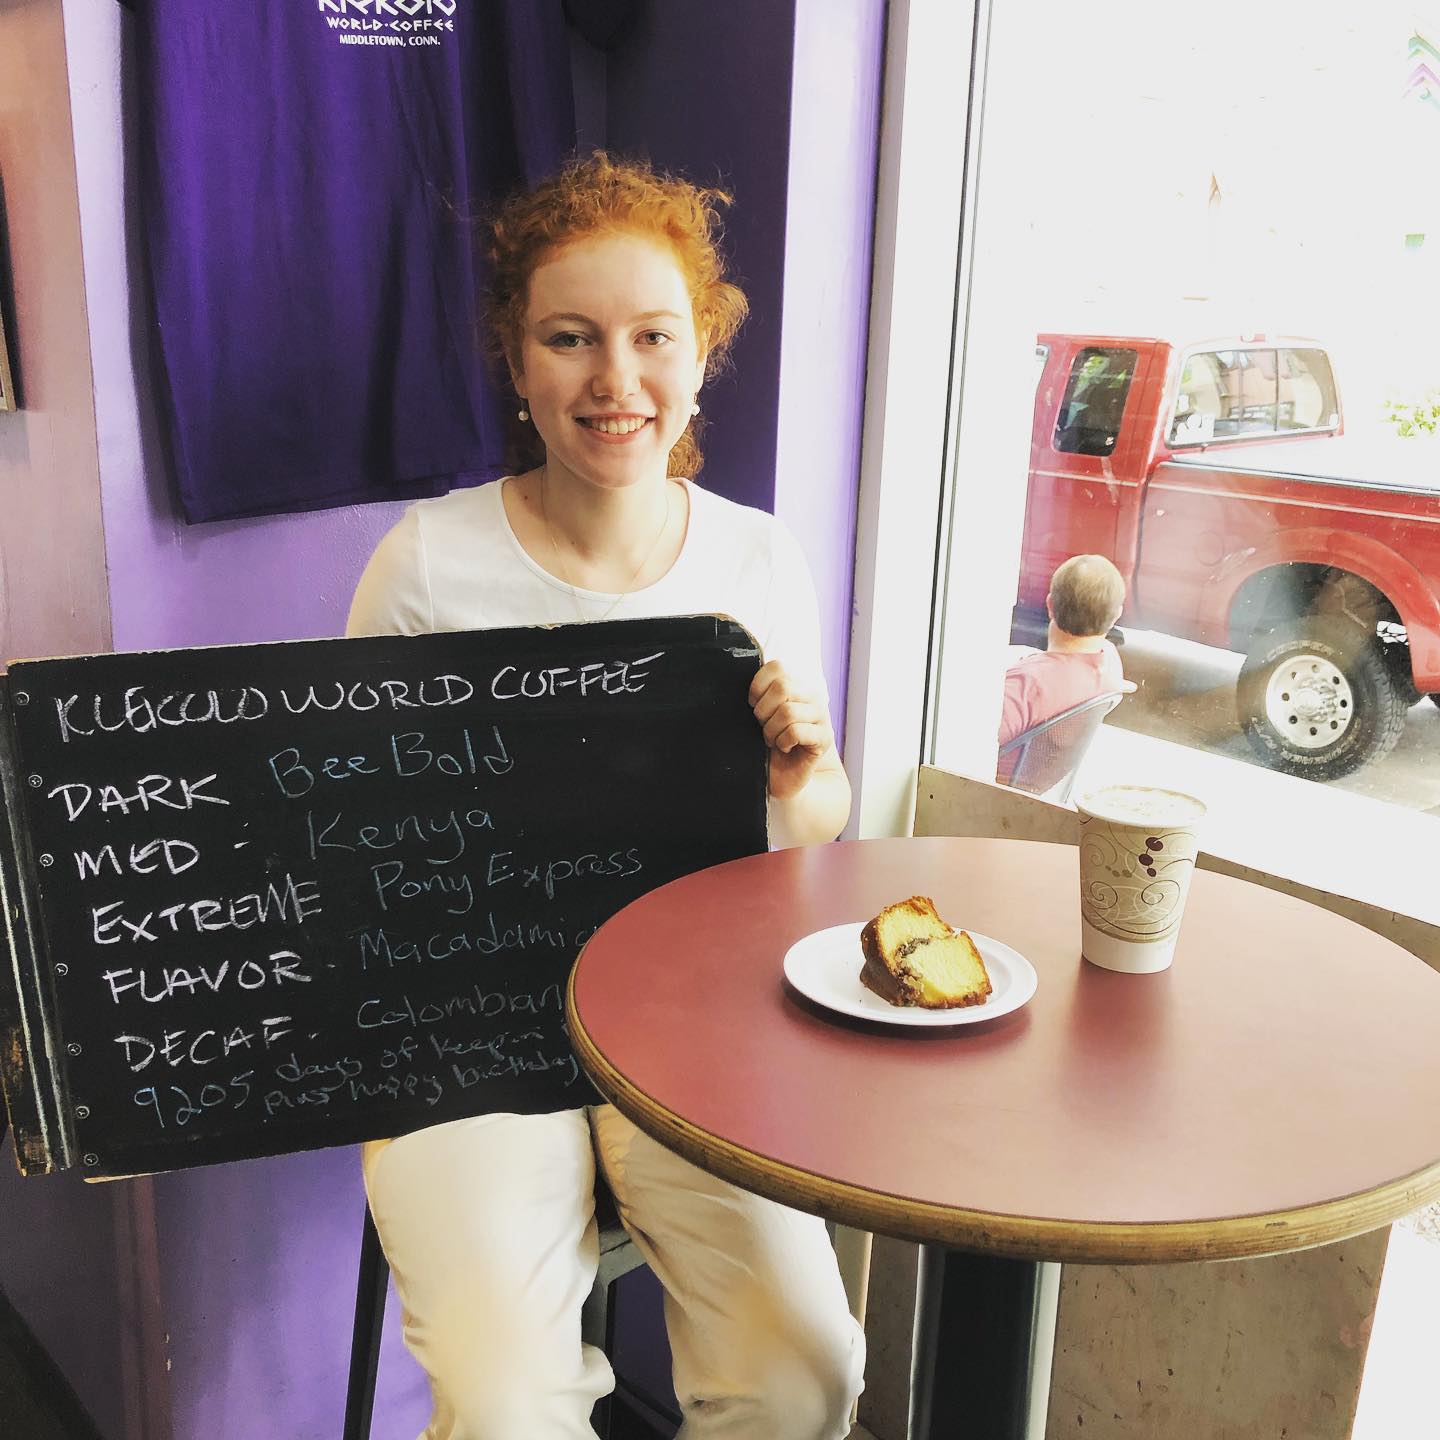 KLEKOLO
WORLD·COFFEE
MIDDLETOWN, CONN.
KLEKOLO WORLD COFFEE
DARK Bee Bold
MED - Kenya
EXTREME Pony Express
FLAVOR - Macadamia
DECAF - Colombian
9205 days of keepin
plus happy birthday